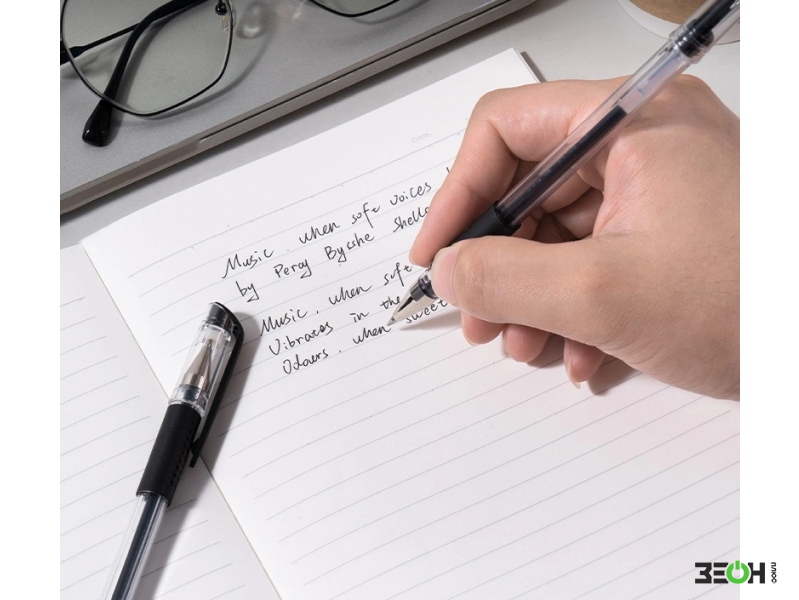 Date.
Music. when soft voices
by Percy Bycshe Shelle
Music, when soft
Vibrates in the
Odours, when sweet
ЗЕОН